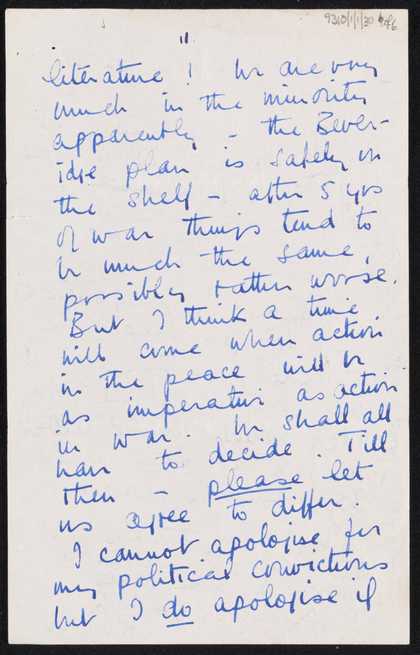 9310/1/1/30
11
literature! We are very
much in the minority
apparently – the Bever-
idge plan is safely on
the shelf – after 5 yrs
of war things tend to
be much the same,
possibly rather worse.
But I think a time
will come when action
in the peace will be
as imperative as action
in war. We shall all
have to decide. Till
then – please let
us agree to differ.
I cannot apologise for
my political convictions
but I do apologise if